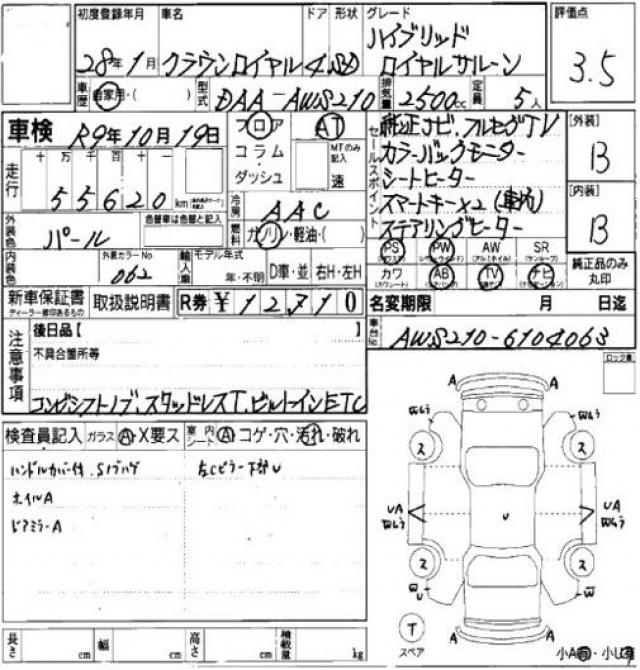 初度登録年月 車名 ドア 形状 グレード 評価点
28年1月 クラウンロイヤル 4 SD ハイブリッド
ロイヤルサルーン 3.5
車歴 自家用・( ) 型式 DAA-AWS210 排気量 2500cc 定員 5人
車検 R9年10月19日
フロア AT
コラム MTのみ記入
ダッシュ 速
セールスポイント
純正ナビ.フルセグTV
カラーバックモニター
シートヒーター
スマートキーx2(車内)
ステアリングヒーター
[外装] B
[内装] B
走行 十 万 千 百 十
55620 km
冷房 AAC
燃料 ガソリン・軽油・( )
外装色 パール 色替車は色替と記入
内装色 外装カラーNo 062
輸入車 モデル年式 年・不明 D車・並 右H・左H
PS PW AW SR
カワ AB TV ナビ
純正品のみ丸印
新車保証書 取扱説明書 R券 ¥12,710
ディーラー捺印あるもの
名変期限 月 日迄
車台No AWS210-6104063
注意事項
後日品【 】
不具合箇所等
コンビシフトノブ.スタッドレスT.ビルトインETC
ロック車
検査員記入 ガラス A・X要ス 室内シート A コゲ・穴・汚れ・破れ
ハンドルカバー付.Sノブハゲ 左Cピラー下部U
ホイルA
ドアミラーA
A A
ス ス
UA UA
U
ス ス
A A
T
スペア
長さ cm 幅 cm 高さ cm 積載量 kg